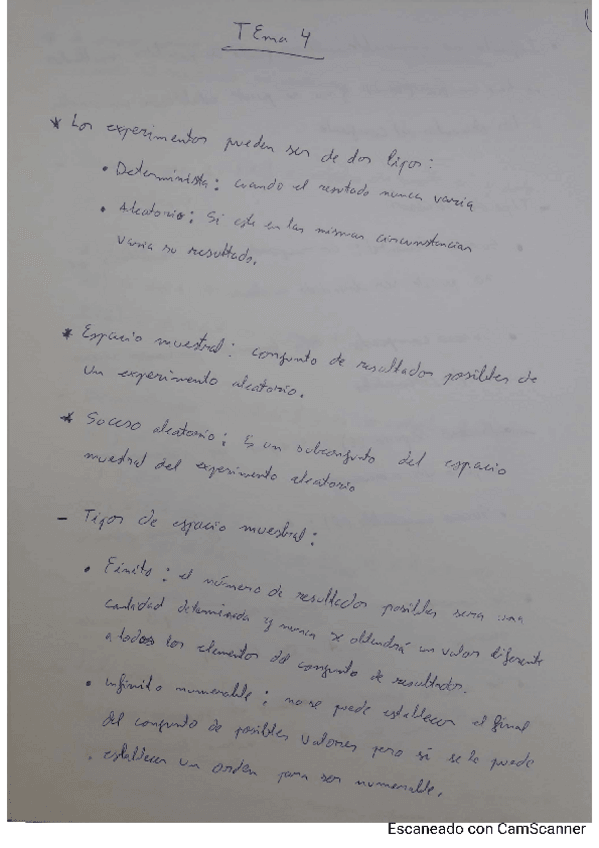 TEma 4
* Los experimentos pueden ser de dos tipos:
• Determinista: cuando el resultado nunca varia
• Aleatorio: Si este en las mismas circunstancias
varia su resultado.
* Espacio muestral: conjunto de resultados posibles de
un experimento aleatorio.
* Suceso aleatorio: Es un subconjunto del espacio
muestral del experimento aleatorio
- Tipos de espacio muestral:
• Finito: el número de resultados posibles sera una
cantidad determinada y nunca se obtendrá un valor diferente
a todos los elementos del conjunto de resultados.
• Infinito numerable: no se puede establecer el final
del conjunto de posibles valores pero si se le puede
establecer un orden para ser numerable.
Escaneado con CamScanner